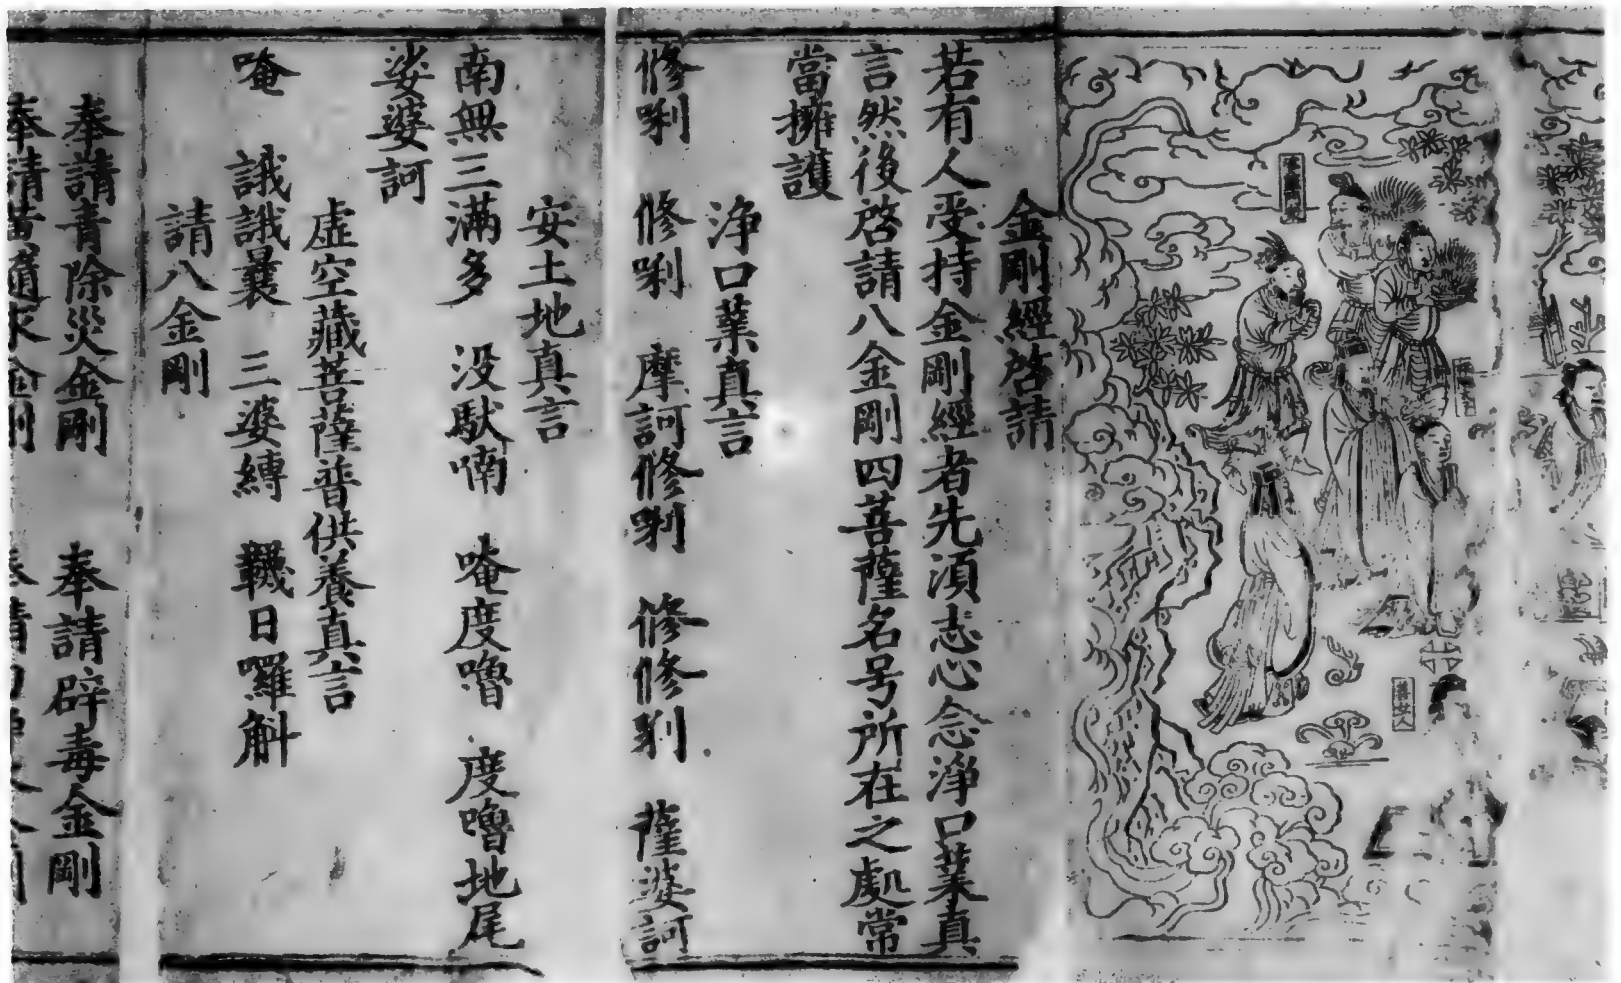 善女人
金剛經啓請
若有人受持金剛經者先湏志心念浄口業真
言然後啓請八金剛四菩薩名号所在之處常
當擁護
浄口業真言
修唎　修唎　摩訶修唎　修修唎　薩婆訶
安土地真言
南無三滿多　没馱喃　唵度嚕　度嚕地尾
娑婆訶
虛空藏菩薩普供養真言
唵　誐誐曩　三婆縛　韈日囉斛
請八金剛
奉請青除災金剛　奉請辟毒金剛
奉請黄隨求金剛　奉請